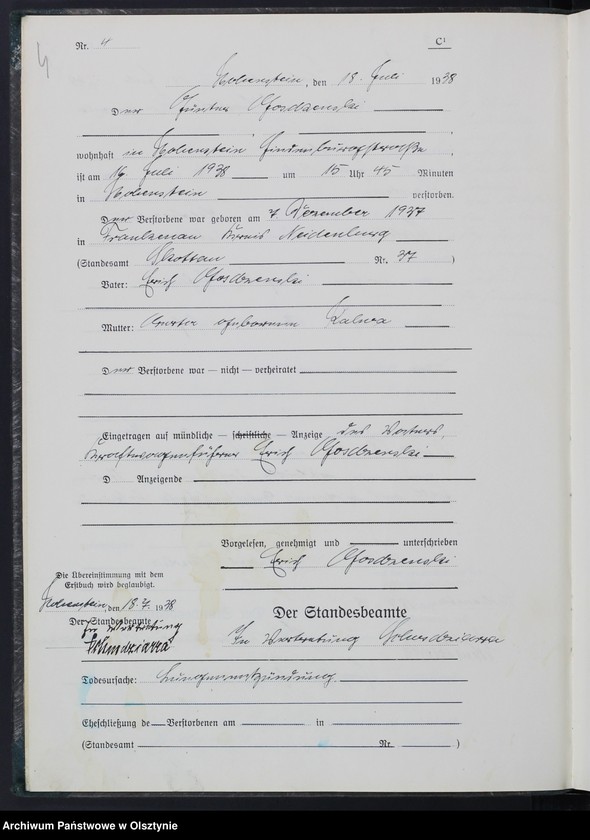 Nr. 4 C¹
4
Hohenstein, den 18. Juli 1938
Der Günter
wohnhaft in Hohenstein Hindenburgstraße
ist am 16 Juli 1938 um 15 Uhr 45 Minuten
in Hohenstein verstorben.
Der Verstorbene war geboren am 7 Dezember 1937
in Frankenau Kreis Neidenburg
(Standesamt Skottau Nr. 37)
Vater: Erich
Mutter: geborene Kalwa
Der Verstorbene war — nicht — verheiratet
Eingetragen auf mündliche — schriftliche — Anzeige des Vaters,
Kraftwagenführer Erich
D Anzeigende
Vorgelesen, genehmigt und unterschrieben
Erich
Die Übereinstimmung mit dem
Erstbuch wird beglaubigt.
Hohenstein, den 18. 7. 1938
Der Standesbeamte
In Vertretung
Der Standesbeamte
In Vertretung
Todesursache: Lungenentzündung
Eheschließung de Verstorbenen am in
(Standesamt Nr. )
Archiwum Państwowe w Olsztynie